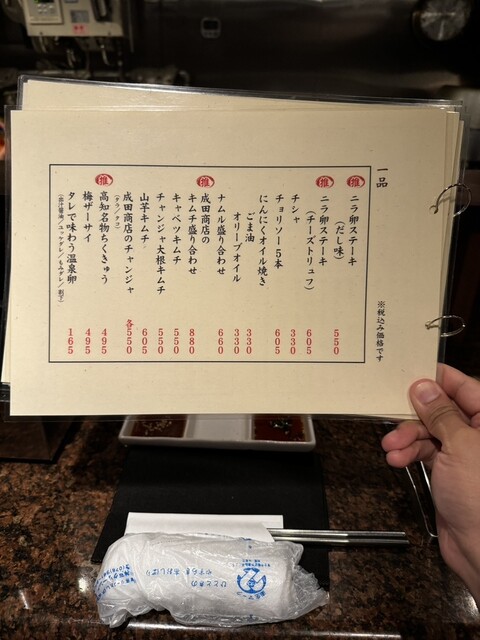 一品
※税込み価格です
推
ニラ卵ステーキ
(だし味)
550
推
ニラ卵ステーキ
(チーズトリュフ)
605
チシャ
330
チョリソー5本
605
にんにくオイル焼き
ごま油
330
オリーブオイル
330
ナムル盛り合わせ
660
推
成田商店の
キムチ盛り合わせ
880
キャベツキムチ
550
チャンジャ大根キムチ
550
山芋キムチ
605
成田商店のチャンジャ
(タラ/タコ)
各550
推
高知名物ちくきゅう
495
梅ザーサイ
495
タレで味わう温泉卵
165
ひとときの
やすらぎ おおしぼり